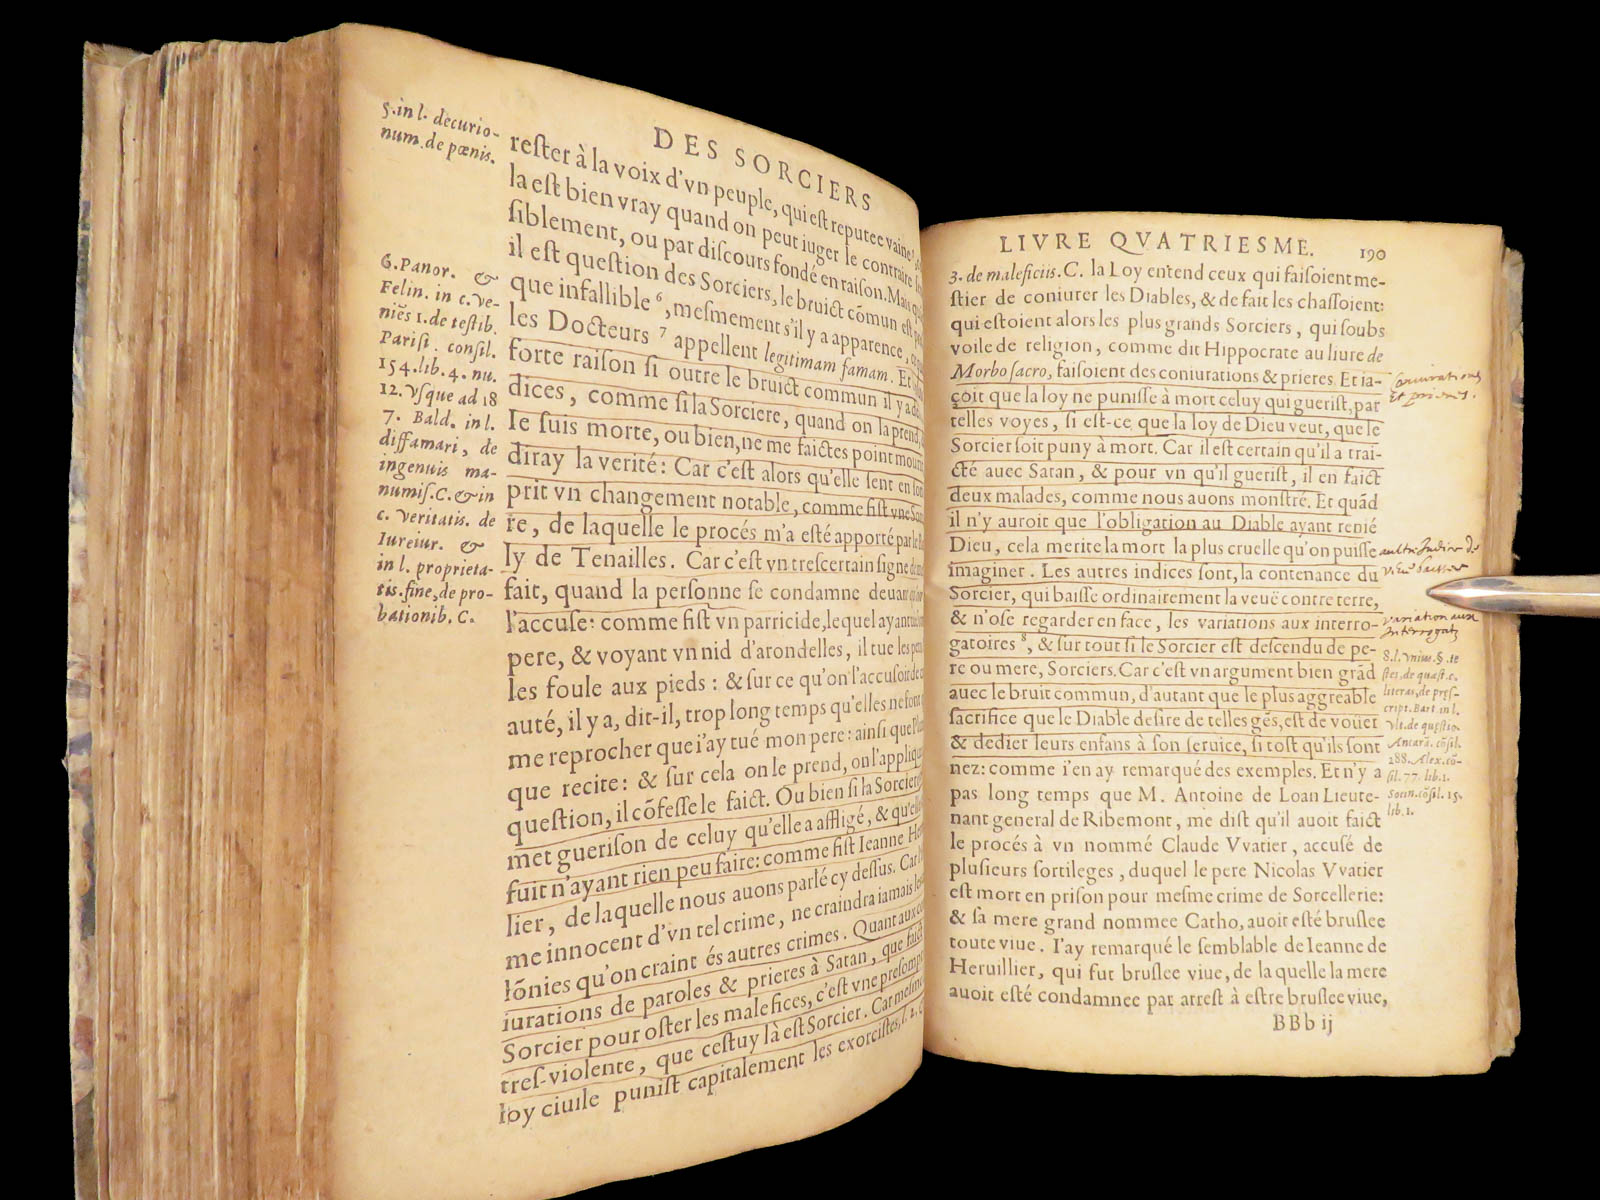 DES SORCIERS
5. in l. decurio-
num. de pœnis.
6. Panor. &
Felin. in c. ve-
niēs 1. de testib.
Parisi. consil.
154. lib. 4. nu.
12. vsque ad 18
7. Bald. in l.
diffamari, de
ingenuis ma-
numis. C. & in
c. veritatis. de
Iureiur. &
in l. proprieta-
tis. fine, de pro-
bationib. C.
rester à la voix d'vn peuple, qui est reputee vaine
la est bien vray quand on peut iuger le contraire
siblement, ou par discours fondé en raison. Mais
il est question des Sorciers, le bruict cōmun est
que infallible 6, mesmement s'il y a apparence,
les Docteurs 7 appellent legitimam famam. Et
forte raison si outre le bruict commun il y a
dices, comme si la Sorciere, quand on la prend,
Ie suis morte, ou bien, ne me faictes point mourir
diray la verité: Car c'est alors qu'elle sent en son
prit vn changement notable, comme fist vne
re, de laquelle le procés m'a esté apporté par le
ly de Tenailles. Car c'est vn trescertain signe
fait, quand la personne se condamne deuant
l'accuse: comme fist vn parricide, lequel ayant
pere, & voyant vn nid d'arondelles, il tue les
les foule aux pieds: & sur ce qu'on l'accusoit de
auté, il y a, dit-il, trop long temps qu'elles ne font
me reprocher que i'ay tué mon pere: ainsi que
que recite: & sur cela on le prend, on l'applique
question, il cōfesse le faict. Ou bien si la Sorciere
met guerison de celuy qu'elle a affligé, & qu'elle
fuit n'ayant rien peu faire: comme fist Ieanne
lier, de laquelle nous auons parlé cy dessus. Car
me innocent d'vn tel crime, ne craindra iamais
lōnies qu'on craint és autres crimes. Quant aux
iurations de paroles & prieres à Satan, que faict
Sorcier pour oster les malefices, c'est vne
tres-violente, que cestuy là est Sorcier. Car mesme
loy ciuile punist capitalement les exorcistes, l.
LIVRE QVATRIESME. 190
3. de maleficiis. C. la Loy entend ceux qui faisoient me-
stier de coniurer les Diables, & de fait les chassoient:
qui estoient alors les plus grands Sorciers, qui soubs
voile de religion, comme dit Hippocrate au liure de
Morbo sacro, faisoient des coniurations & prieres. Et ia-
çoit que la loy ne punisse à mort celuy qui guerist, par
telles voyes, si est-ce que la loy de Dieu veut, que le
Sorcier soit puny à mort. Car il est certain qu'il a trai-
cté auec Satan, & pour vn qu'il guerist, il en faict
deux malades, comme nous auons monstré. Et quād
il n'y auroit que l'obligation au Diable ayant renié
Dieu, cela merite la mort la plus cruelle qu'on puisse
imaginer. Les autres indices sont, la contenance du
Sorcier, qui baisse ordinairement la veuë contre terre,
& n'ose regarder en face, les variations aux interro-
gatoires 8, & sur tout si le Sorcier est descendu de pe-
re ou mere, Sorciers. Car c'est vn argument bien grād
auec le bruit commun, d'autant que le plus aggreable
sacrifice que le Diable desire de telles gēs, est de voüer
& dedier leurs enfans à son seruice, si tost qu'ils sont
nez: comme i'en ay remarqué des exemples. Et n'y a
pas long temps que M. Antoine de Loan Lieute-
nant general de Ribemont, me dist qu'il auoit faict
le procés à vn nommé Claude Vvatier, accusé de
plusieurs sortileges, duquel le pere Nicolas Vvatier
est mort en prison pour mesme crime de Sorcellerie:
& sa mere grand nommee Catho, auoit esté bruslee
toute viue. I'ay remarqué le semblable de Ieanne de
Heruillier, qui fut bruslee viue, de laquelle la mere
auoit esté condamnee par arrest à estre bruslee viue,
BBb ij
Coniurations
et prieres.
variation aux
Interrogat
8. l. vnius. §. te
stes, de quæst. c.
literas, de præs-
cript. Bart. in l.
vlt. de quæstio.
Ancara. cōsil.
288. Alex. cō-
sil. 77. lib. 1.
Socin. cōsil. 15.
lib. 1.